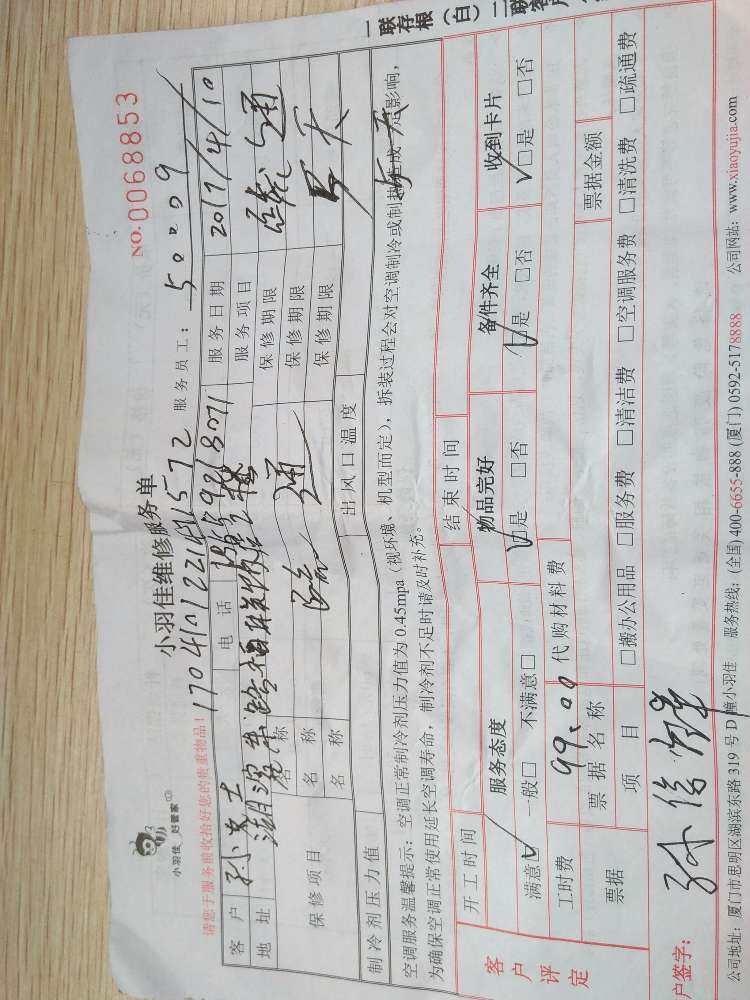 一联存根（白）二联客户
小羽佳 好管家
小羽佳维修服务单
NO.0068853
请您于服务前收拾好您的贵重物品！
服务员工：50009
客户 孙女士 电话 服务日期 2017/4/10
地址 服务项目
保修项目 名称 保修期限
名称 通 保修期限
名称 保修期限
制冷剂压力值 出风口温度
空调服务温馨提示：空调正常制冷剂压力值为0.45mpa（视环境、机型而定），拆装过程会对空调制冷或制热造成一定影响，
为确保空调正常使用延长空调寿命，制冷剂不足时请及时补充。
开工时间 结束时间
客户评定 服务态度 物品完好 备件齐全 收到卡片
满意☑ 一般□ 不满意□ ☑是 □否 ☑是 □否 ☑是 □否
工时费 99.00 代购材料费
票据 票据名称 票据金额
项目 □搬办公用品 □服务费 □清洁费 □空调服务费 □清洗费 □疏通费
户签字：
公司地址：厦门市思明区湖滨东路319号D幢小羽佳 服务热线：(全国) 400-6655-888 (厦门) 0592-5178888 公司网站：www.xiaoyujia.com